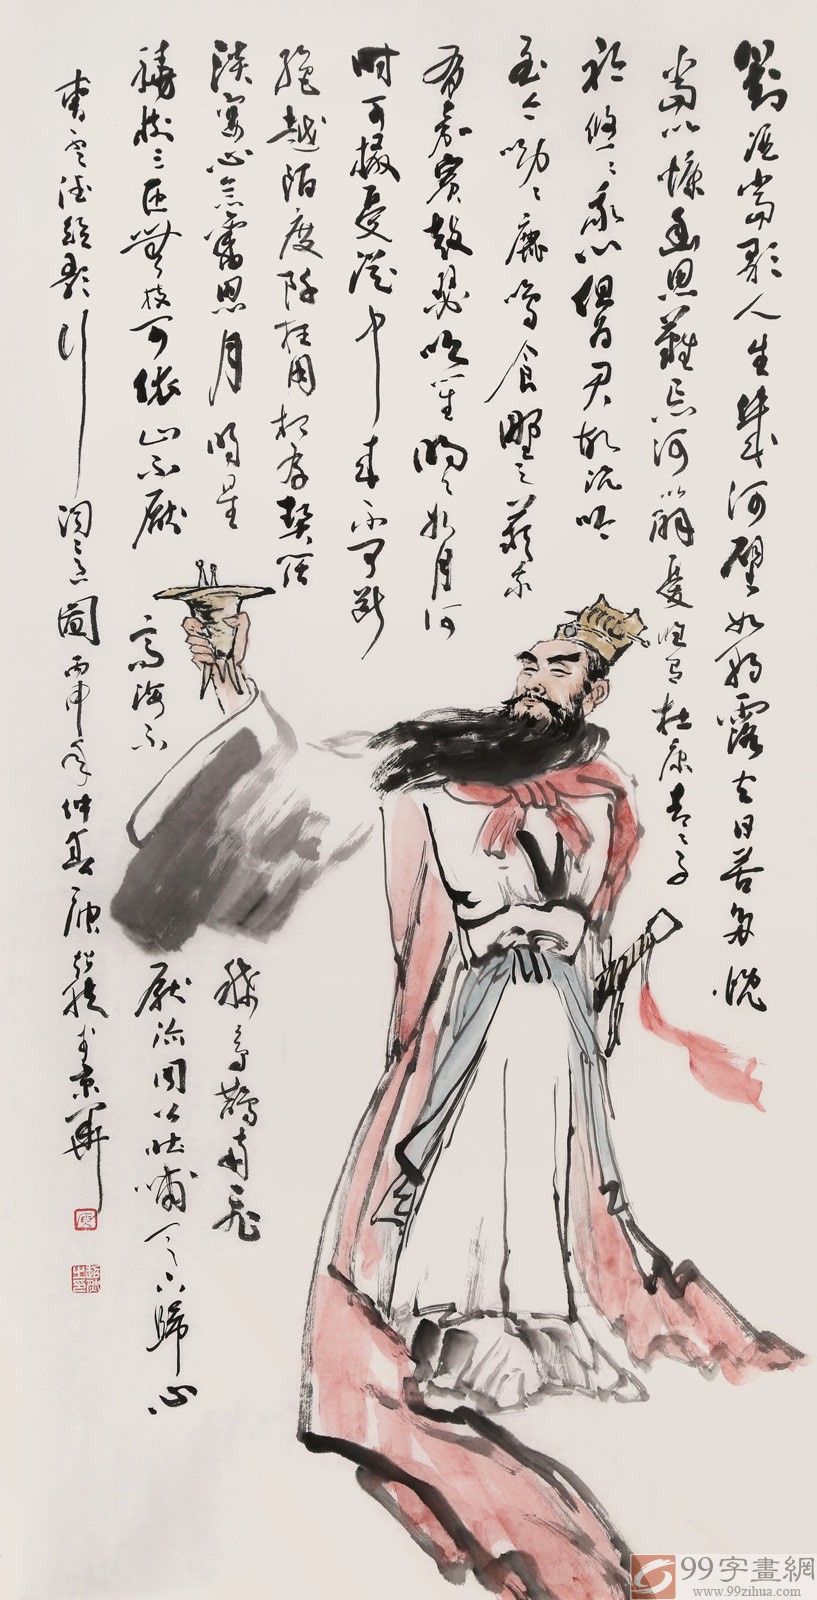 對酒當歌人生幾何譬如朝露去日苦多慨
當以慷幽思難忘何以解憂唯有杜康青々子
衿悠々我心但為君故沉吟
至今呦々鹿鳴食野之蘋我
有嘉賓鼓瑟吹笙明々如月何
時可掇憂從中來不可斷
絕越陌度阡枉用相存契闊
談宴心念舊恩月明星
稀烏鵲南飛
繞樹三匝無枝可依山不厭
高海不
厭深周公吐哺天下歸心
曹孟德短歌行詞意圖丙申年仲春於京華
99字畫網
www.99zihua.com